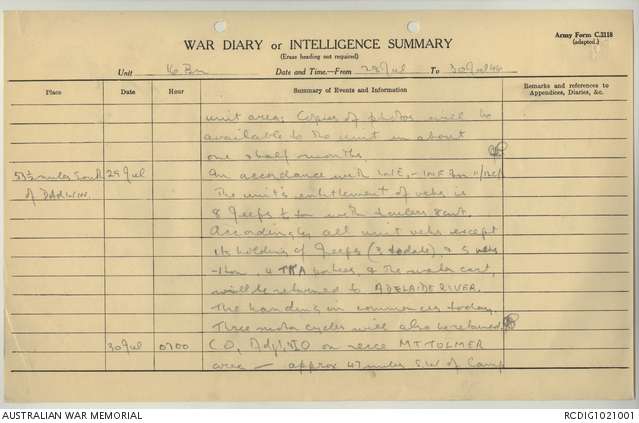 Army Form C.2118
(adapted.)
WAR DIARY or INTELLIGENCE SUMMARY
(Erase heading not required)
Unit 16 Bn Date and Time.—From 28 Jul To 30 Jul 44
Place Date Hour Summary of Events and Information Remarks and references to Appendices, Diaries, &c.
unit area; Copies of photos will be
available to the unit in about
one & half months.
53½ miles South 29 Jul In accordance with W.E. - INF Bn
of DARWIN. The unit's entitlement of vehs is
8 Jeeps ¼ ton with trailers 8cwt.
Accordingly all unit vehs except
its holding of Jeeps (3 to date), & 5 vehs
and the water cart,
will be returned to ADELAIDE RIVER.
The handing in commences today.
Three motor cycles will also be retained
30 Jul 0700 C.O, Adjt, IO on recce MT TOLMER
area — approx 47 miles S.W of Camp
AUSTRALIAN WAR MEMORIAL
RCDIG1021001